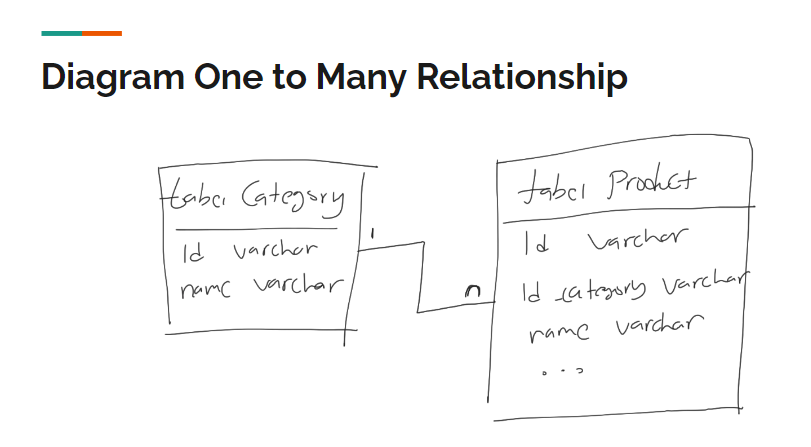 Diagram One to Many Relationship
tabel Category
Id varchar
name varchar
1
n
tabel Product
Id varchar
Id_category varchar
name varchar
...